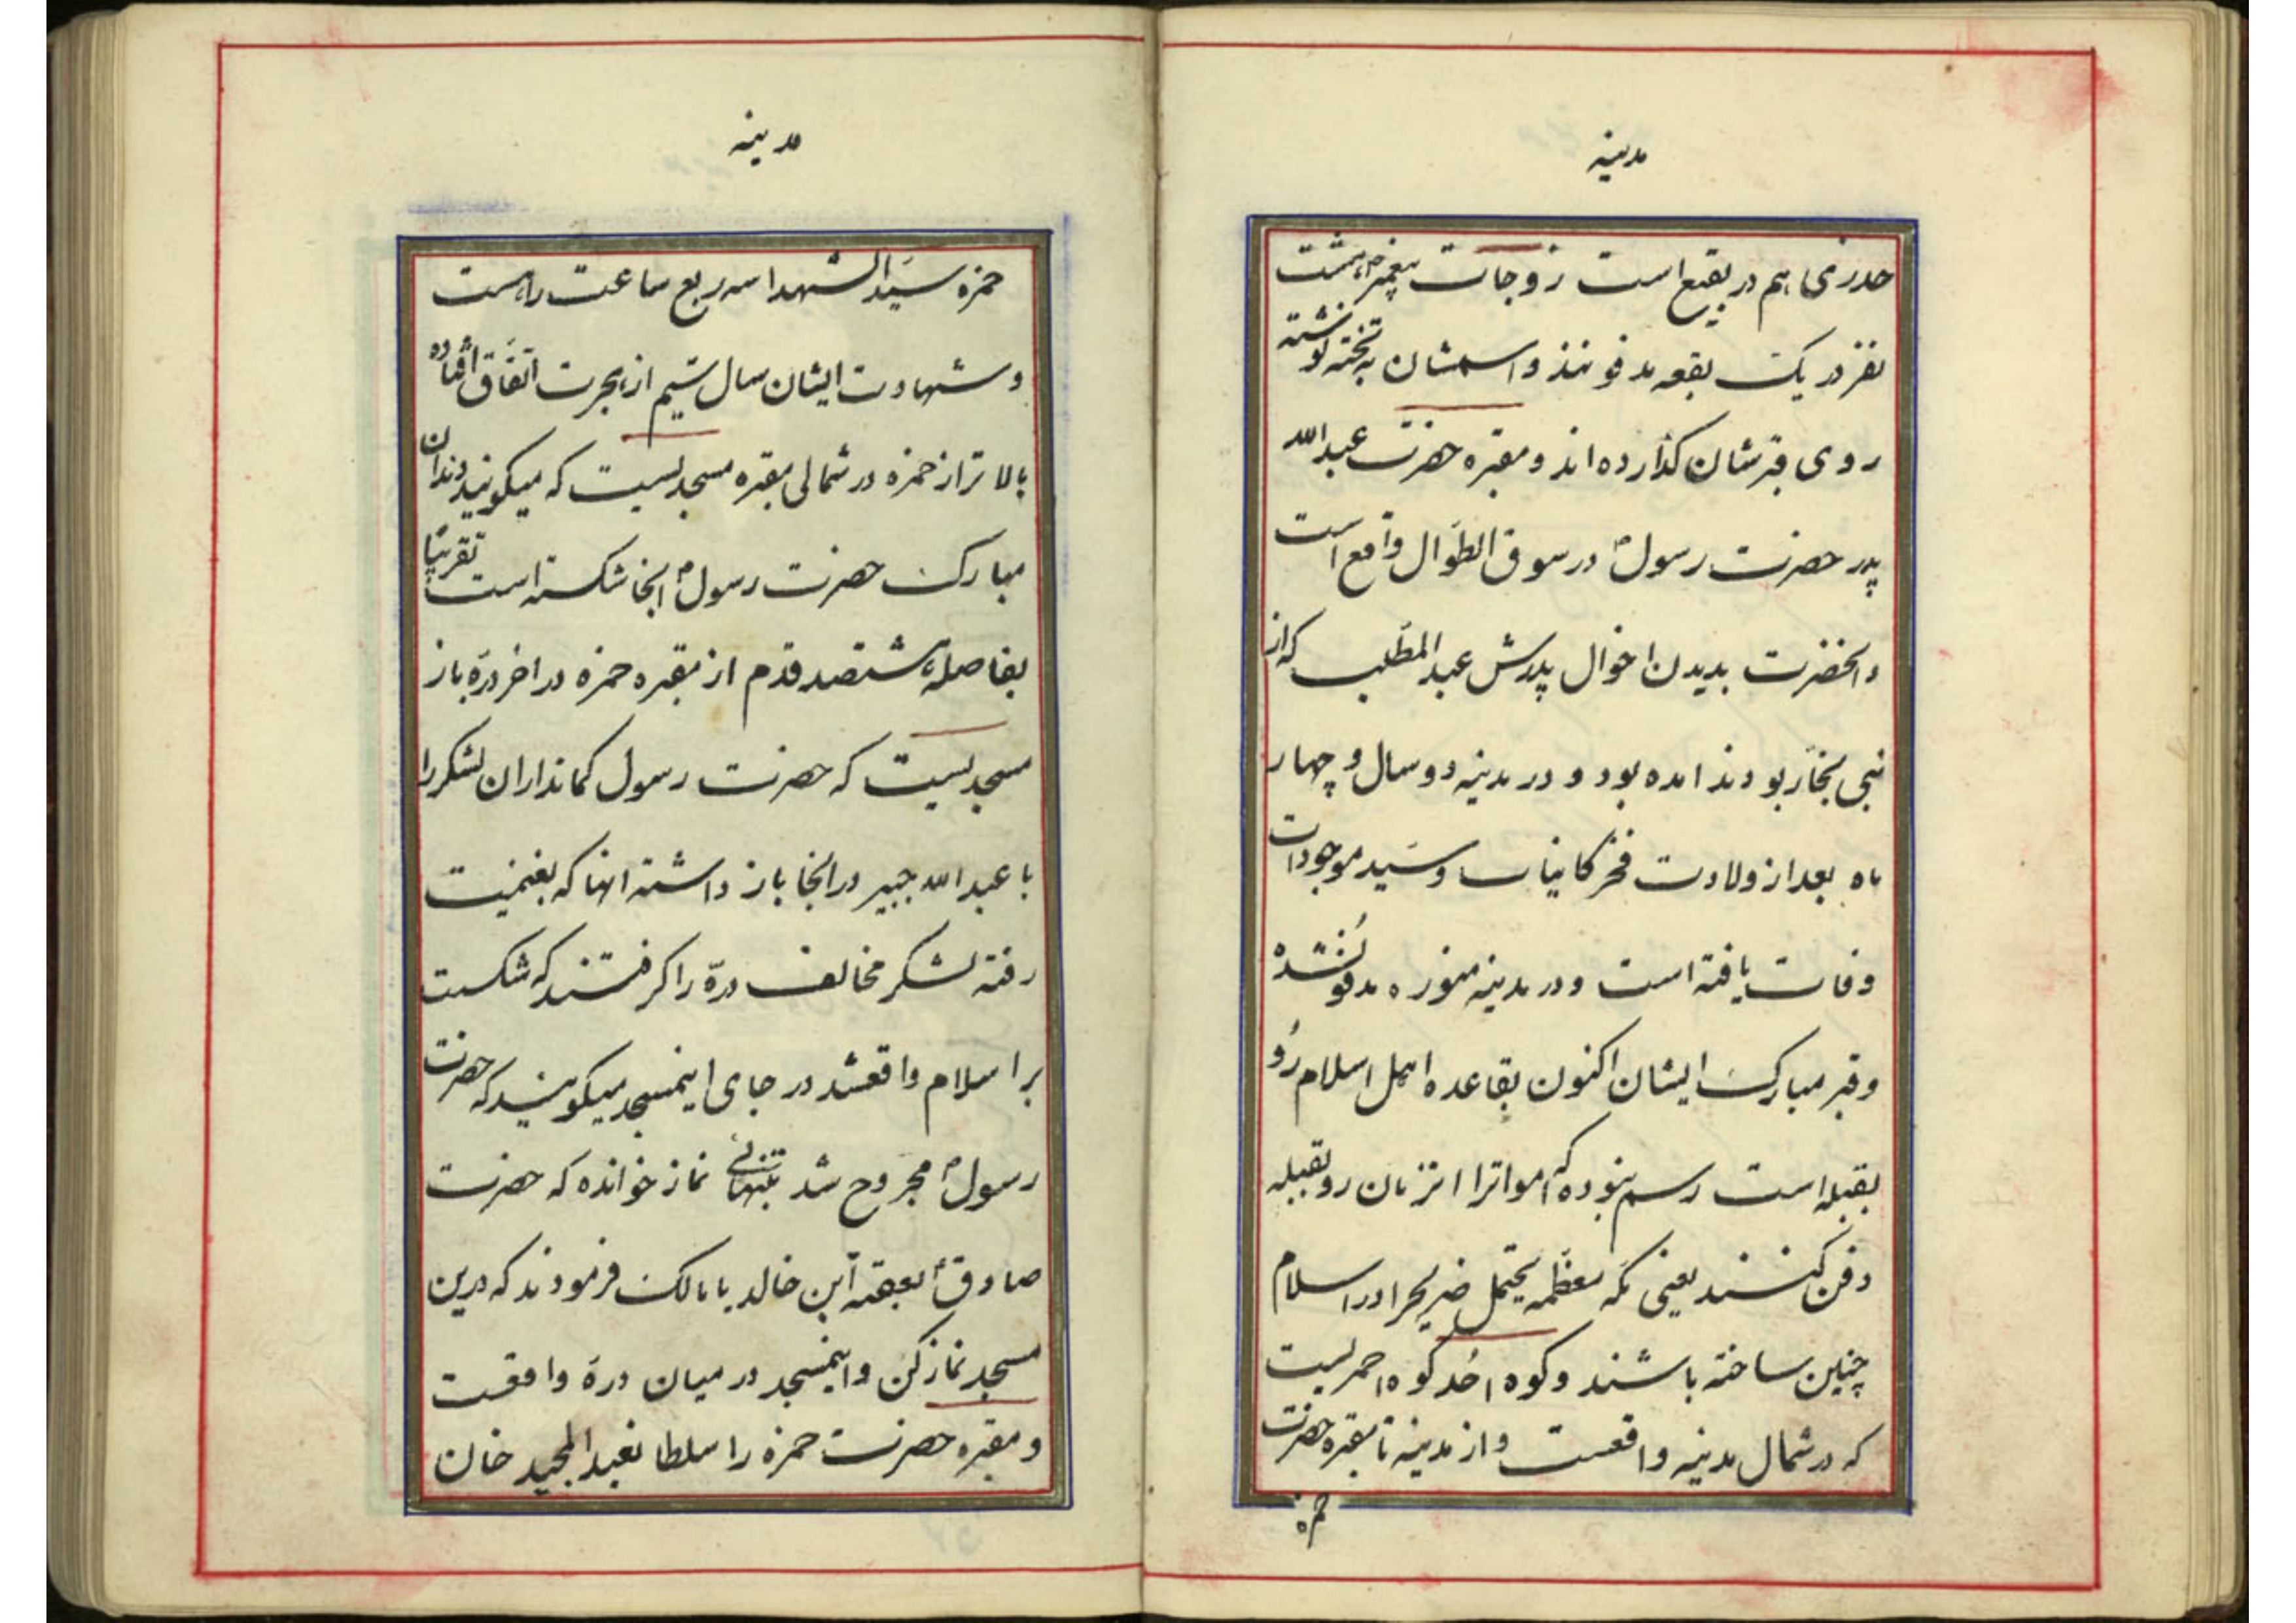 مدینه
خدری هم در بقیع است زوجات پیغمبرص هشت
نفر در یک بقعه مدفونند و اسمشان به تخته نوشته
روی قبرشان گذارده اند و مقبره حضرت عبدالله
پدر حضرت رسولص در سوق الطوال واقع است
و انحضرت بدیدن اخوال پدرش عبدالمطّلب که از
بنی نجّار بودند امده بود و در مدینه دو سال و چهار
ماه بعد از ولادت فخر کاینات و سیّد موجودات
وفات یافته است و در مدینه منوره مدفون شده
و قبر مبارک ایشان اکنون بقاعده اهل اسلام رو
بقبله است رسم نبوده که امواترا انزمان رو بقبله
دفن کنند یعنی مکّه معظّمه یحتمل ضریحرا در اسلام
چنین ساخته باشند و کوه اُحُد کوه احمریست
که در شمال مدینه واقعست و از مدینه تا مقبره حضرت
حمزه
مدینه
حمزه سیّد الشهدا سه ربع ساعت راهست
و شهادت ایشان سال سیّم از هجرت اتّفاق افتاده
بالاتر از حمزه در شمالی مقبره مسجدیست که میکویند دندان
مبارک حضرت رسولص انجا شکسته است تقریبًا
بفاصله ششصد قدم از مقبره حمزه در اخر درّه باز
مسجدیست که حضرت رسول کمانداران لشکر را
با عبدالله جبیر در انجا باز داشته انها که بغنیمت
رفته لشکر مخالف درّه را کرفتند که شکست
بر اسلام واقعشد در جای اینمسجد میکویند که حضرت
رسولص مجروح شد بتنهائی نماز خوانده که حضرت
صادقع بعقبة ابن خالد یا مالک فرمودند که درین
مسجد نماز کن و اینمسجد در میان درّه واقعست
و مقبره حضرت حمزه را سلطا نعبد المجید خان